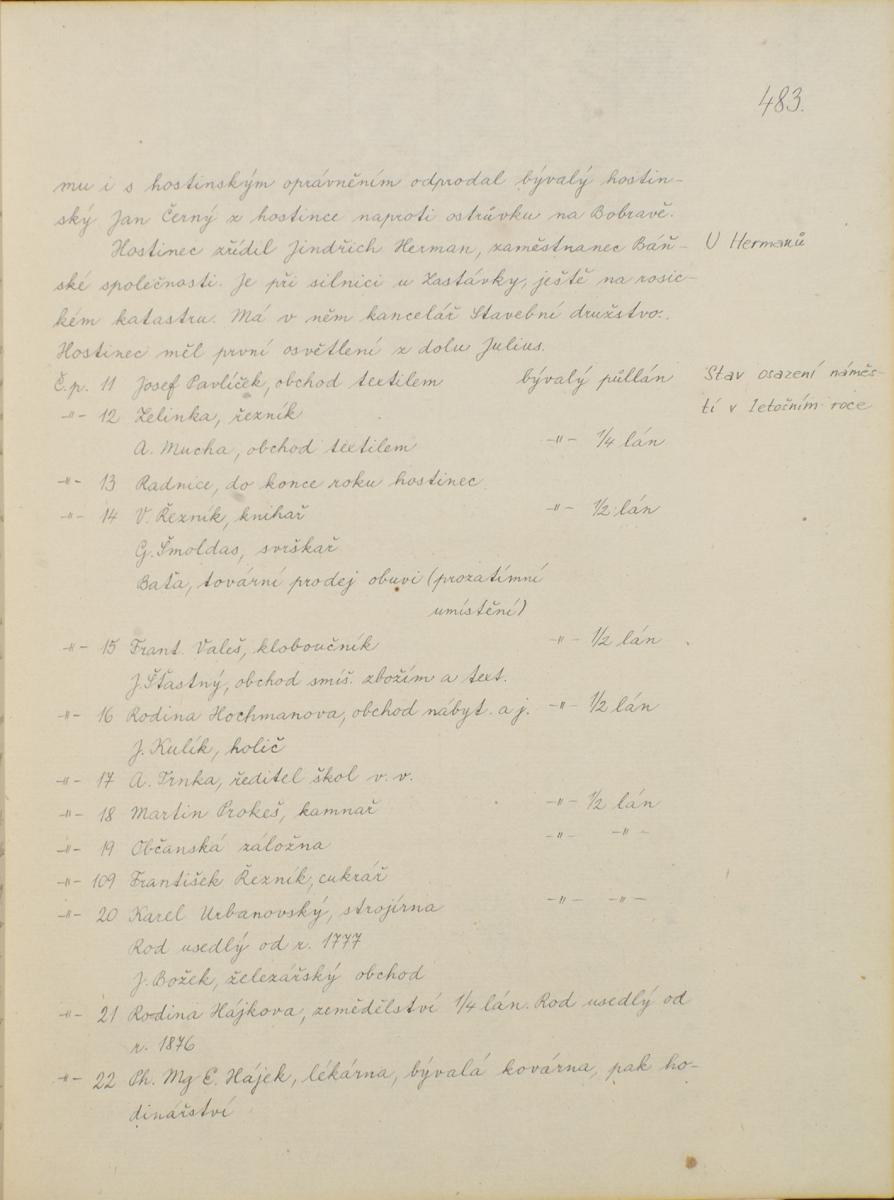 483.
mu i s hostinským oprávněním odprodal bývalý hostin-
ský Jan Černý z hostince naproti ostrůvku na Bobravě.
Hostinec zřídil Jindřich Herman, zaměstnanec Báň- U Hermanů
ské společnosti. Je při silnici u Zastávky, ještě na rosic-
kém katastru. Má v něm kancelář Stavební družstvo.
Hostinec měl první osvětlení z dolu Julius.
Č.p. 11 Josef Pavlíček, obchod textilem bývalý půllán Stav osazení náměs-
-"- 12 Zelinka, řezník tí v letočním roce
A. Mucha, obchod textilem -"- 1/4 lán
-"- 13 Radnice, do konce roku hostinec
-"- 14 V. Řezník, knihař -"- 1/2 lán
G. Šmoldas, svrškař
Baťa, tovární prodej obuvi (prozatímní
umístění)
-"- 15 Frant. Valeš, kloboučník -"- 1/2 lán
J. Šťastný, obchod smíš. zbožím a text.
-"- 16 Rodina Hochmanova, obchod nábyt. a j. -"- 1/2 lán
J. Kulík, holič
-"- 17 A. Trnka, ředitel škol v. v.
-"- 18 Martin Prokeš, kamnař -"- 1/2 lán
-"- 19 Občanská záložna -"- -"-
-"- 109 František Řezník, cukrář
-"- 20 Karel Urbanovský, strojírna -"- -"-
Rod usedlý od r. 1777
J. Božek, železářský obchod
-"- 21 Rodina Hájkova, zemědělství 1/4 lán. Rod usedlý od
r. 1876
-"- 22 Ph. Mg E. Hájek, lékárna, bývalá kovárna, pak ho-
dinářství